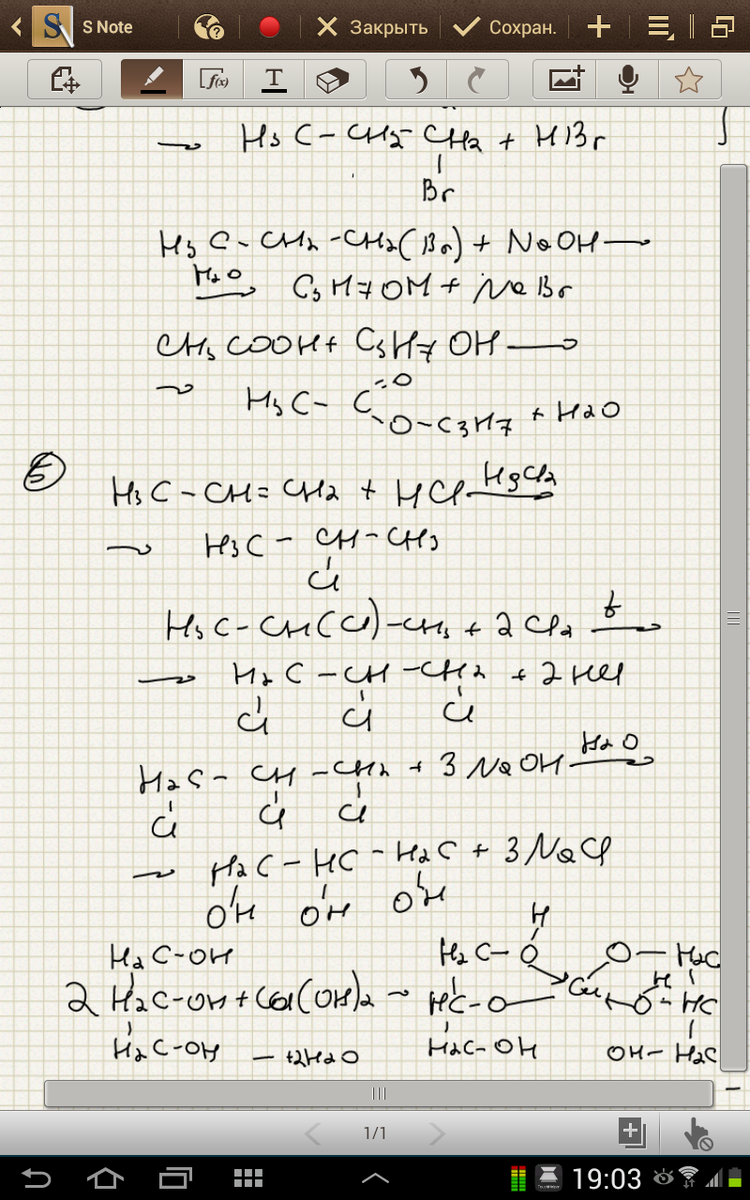 S Note Закрыть Сохран.
f(x) T
→ H3C-CH2-CH2 + HBr
Br
H3C-CH2-CH2(Br) + NaOH →
H2O
→ C3H7OH + NaBr
CH3COOH + C3H7OH →
→ H3C-C=O
O-C3H7 + H2O
5
H3C-CH=CH2 + HCl HgCl2 →
→ H3C-CH-CH3
Cl
H3C-CH(Cl)-CH3 + 2Cl2 t →
→ H2C-CH-CH2 + 2HCl
Cl Cl Cl
H2C-CH-CH2 + 3NaOH H2O →
Cl Cl Cl
→ H2C-HC-H2C + 3NaCl
OH OH OH
H
H2C-OH H2C-O O-H2C
2 H2C-OH + Cu(OH)2 → HC-O Cu O-HC
H
H2C-OH → +2H2O H2C-OH OH-H2C
1/1
19:03